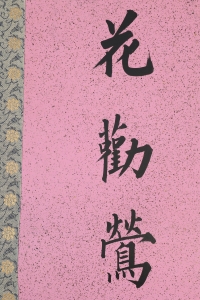 花勸鶯